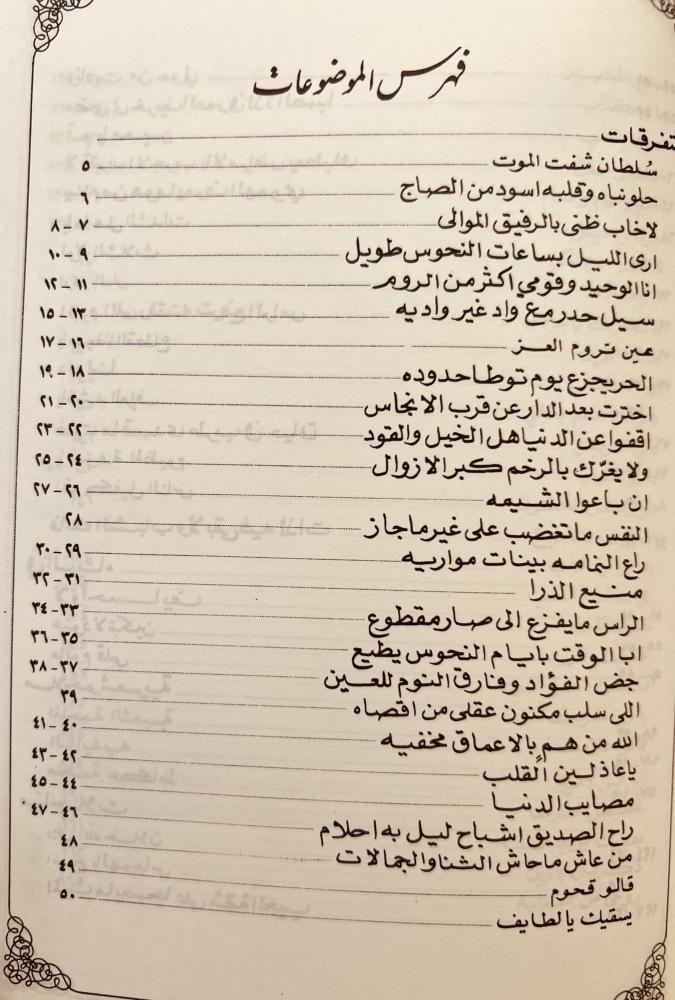 فهرس الموضوعات
متفرقات
سُلطان شفت الموت ٥
حلونباه وقلبه اسود من الصاج ٦
لاخاب ظنى بالرفيق الموالى ٧ - ٨
ارى الليل بساعات النحوس طويل ٩ - ١٠
انا الوحيد وقومي اكثر من الروم ١١ - ١٢
سيل حدر مع واد غير واديه ١٣ - ١٥
عين تروم العز ١٦ - ١٧
الحر يجزع يوم توطا حدوده ١٨ - ١٩
اخترت بعد الدار عن قرب الانجاس ٢٠ - ٢١
اقفوا عن الدنيا هل الخيل والقود ٢٢ - ٢٣
ولا يغرّك بالرخم كبر الازوال ٢٤ - ٢٥
ان باعوا الشيمه ٢٦ - ٢٧
النفس ما تغضب على غير ماجاز ٢٨
راع النمامه بينات مواريه ٢٩ - ٣٠
منيع الذرا ٣١ - ٣٢
الراس ما يفزع الى صار مقطوع ٣٣ - ٣٤
ابا الوقت بايام النحوس يطيع ٣٥ - ٣٦
جض الفؤاد وفارق النوم للعين ٣٧ - ٣٨
اللى سلب مكنون عقلى من اقصاه ٣٩
الله من هم بالاعماق مخفيه ٤٠ - ٤١
ياعاذلين القلب ٤٢ - ٤٣
مصايب الدنيا ٤٤ - ٤٥
راح الصديق اشباح ليل به احلام ٤٦ - ٤٧
من عاش ماحاش الثنا والجمالات ٤٨
قالو قحوم ٤٩
يسقيك يالطايف ٥٠